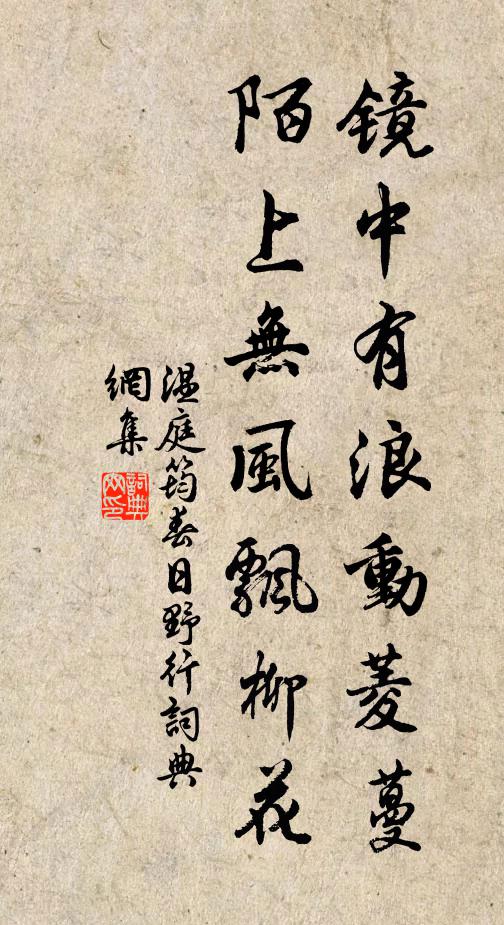 鏡中有浪動菱蔓
陌上無風飄柳花
溫庭筠春日野行詞典
網集
詞典網印